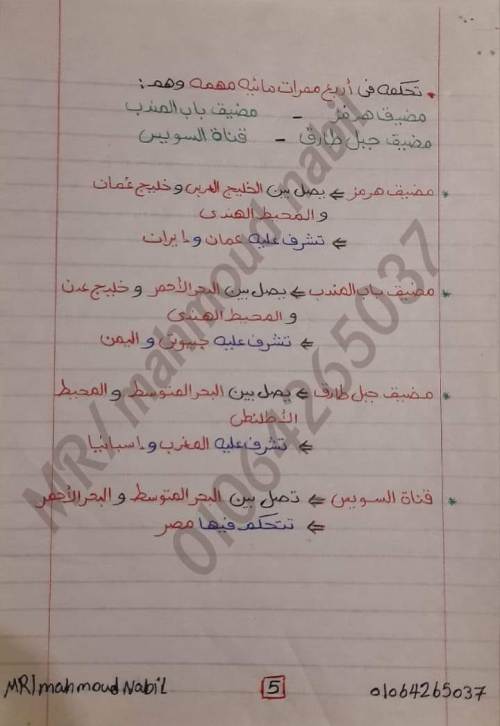 * تحكمه فى أربع ممرات مائيه مهمه وهم:
مضيق هرمز - مضيق باب المندب
مضيق جبل طارق - قناة السويس
* مضيق هرمز ⇐ يصل بين الخليج العربى و خليج عُمان
و المحيط الهندى
⇐ تشرف عليه عمان و إيران
* مضيق باب المندب ⇐ يصل بين البحر الأحمر و خليج عدن
و المحيط الهندى
⇐ تشرف عليه جيبوتى و اليمن
* مضيق جبل طارق ⇐ يصل بين البحر المتوسط و المحيط
الأطلنطى
⇐ تشرف عليه المغرب و إسبانيا
* قناة السويس ⇐ تصل بين البحر المتوسط و البحر الأحمر
⇐ تتحكم فيها مصر
MR/mahmoud nabil
01064265037
MR/mahmoud Nabil 5 01064265037